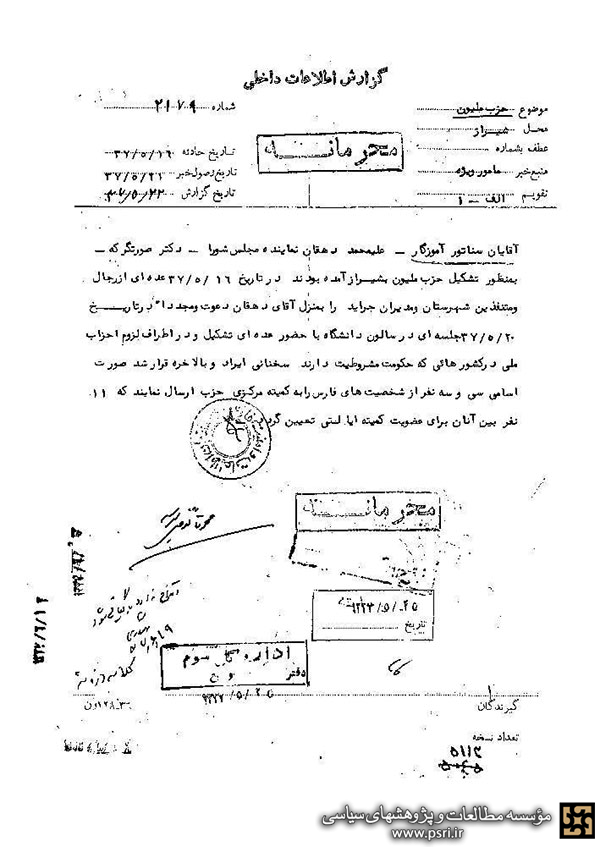 گزارش اطلاعات داخلی
موضوع حزب ملیون
شماره ۲۱۷۹
محل شیراز
عطف بشماره
محرمانه
تاریخ حادثه ۳۷/۵/۱۶
منبع خبر مامور ویژه
تاریخ وصول خبر ۳۷/۵/۲۱
تقویم الف - ۱
تاریخ گزارش ۳۷/۵/۲۲
آقایان سناتور آموزگار - علیمحمد دهقان نماینده مجلس شورا - دکتر صورتگر که -
بمنظور تشکیل حزب ملیون بشیراز آمده بودند در تاریخ ۳۷/۵/۱۶ عده ای از رجال
ومتنفذین شهرستان ومدیران جراید را بمنزل آقای دهقان دعوت ومجددا در تاریخ
۳۷/۵/۲۰ جلسه ای در سالون دانشگاه با حضور عده ای تشکیل و در اطراف لزوم احزاب
ملی در کشور هائی که حکومت مشروطیت دارند سخنانی ایراد و بالاخره قرار شد صورت
اسامی سی و سه نفر از شخصیت های فارس را به کمیته مرکزی حزب ارسال نمایند که ۱۱
نفر بین آنان برای عضویت کمیته ایالتی تعیین
محرمانه
تاریخ
اداره کل سوم
دفتر
گیرندگان
تعداد نسخه
۵۱۱۲
مؤسسه مطالعات و پژوهشهای سیاسی
www.psri.ir